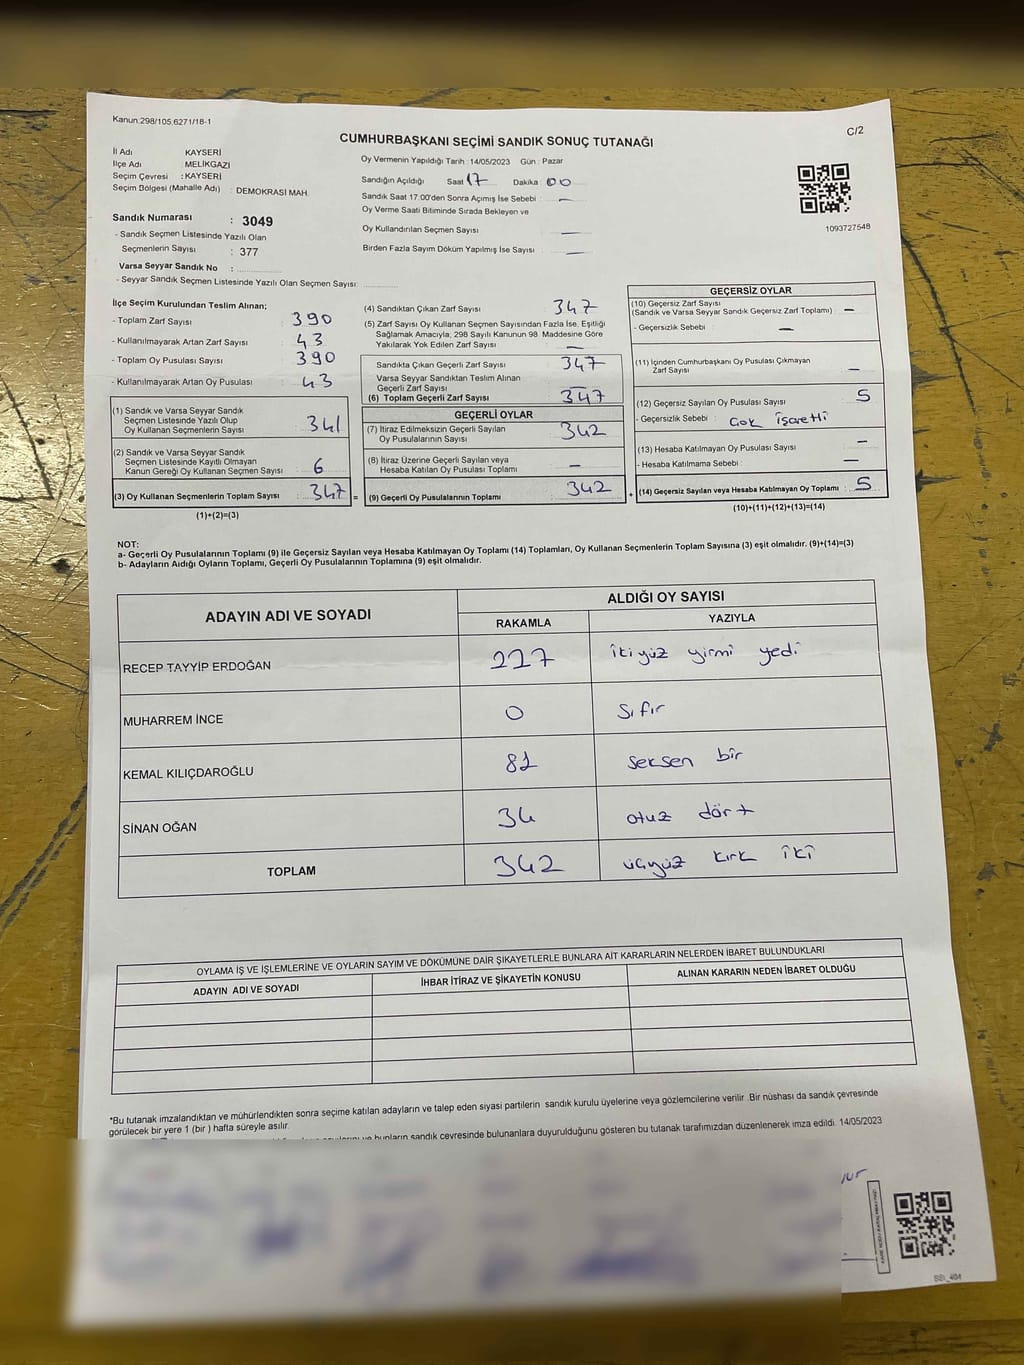 Kanun:298/105,6271/18-1
C/2
CUMHURBAŞKANI SEÇİMİ SANDIK SONUÇ TUTANAĞI
İl Adı KAYSERİ
İlçe Adı MELİKGAZİ
Seçim Çevresi : KAYSERİ
Seçim Bölgesi (Mahalle Adı) : DEMOKRASİ MAH.
Sandık Numarası : 3049
- Sandık Seçmen Listesinde Yazılı Olan
Seçmenlerin Sayısı : 377
Varsa Seyyar Sandık No :
- Seyyar Sandık Seçmen Listesinde Yazılı Olan Seçmen Sayısı:
Oy Vermenin Yapıldığı Tarih :14/05/2023 Gün : Pazar
Sandığın Açıldığı Saat 17 Dakika : 00
Sandık Saat 17:00'den Sonra Açımış İse Sebebi : —
Oy Verme Saati Bitiminde Sırada Bekleyen ve
Oy Kullandırılan Seçmen Sayısı : —
Birden Fazla Sayım Döküm Yapılmış İse Sayısı : —
1093727548
İlçe Seçim Kurulundan Teslim Alınan;
- Toplam Zarf Sayısı : 390
- Kullanılmayarak Artan Zarf Sayısı : 43
- Toplam Oy Pusulası Sayısı : 390
- Kullanılmayarak Artan Oy Pusulası : 43
(1) Sandık ve Varsa Seyyar Sandık
Seçmen Listesinde Yazılı Olup
Oy Kullanan Seçmenlerin Sayısı : 341
(2) Sandık ve Varsa Seyyar Sandık
Seçmen Listesinde Kayıtlı Olmayan
Kanun Gereği Oy Kullanan Seçmen Sayısı : 6
(3) Oy Kullanan Seçmenlerin Toplam Sayısı : 347 =
(1)+(2)=(3)
(4) Sandıktan Çıkan Zarf Sayısı : 347
(5) Zarf Sayısı Oy Kullanan Seçmen Sayısından Fazla İse, Eşitliği
Sağlamak Amacıyla, 298 Sayılı Kanunun 98. Maddesine Göre
Yakılarak Yok Edilen Zarf Sayısı : —
Sandıkta Çıkan Geçerli Zarf Sayısı : 347
Varsa Seyyar Sandıktan Teslim Alınan
Geçerli Zarf Sayısı : —
(6) Toplam Geçerli Zarf Sayısı : 347
GEÇERLİ OYLAR
(7) İtiraz Edilmeksizin Geçerli Sayılan
Oy Pusulalarının Sayısı : 342
(8) İtiraz Üzerine Geçerli Sayılan veya
Hesaba Katılan Oy Pusulası Toplamı : —
(9) Geçerli Oy Pusulalarının Toplamı : 342 +
GEÇERSİZ OYLAR
(10) Geçersiz Zarf Sayısı
(Sandık ve Varsa Seyyar Sandık Geçersiz Zarf Toplamı) : —
- Geçersizlik Sebebi : —
(11) İçinden Cumhurbaşkanı Oy Pusulası Çıkmayan
Zarf Sayısı : —
(12) Geçersiz Sayılan Oy Pusulası Sayısı : 5
- Geçersizlik Sebebi : Çok İşaretli
(13) Hesaba Katılmayan Oy Pusulası Sayısı : —
- Hesaba Katılmama Sebebi : —
(14) Geçersiz Sayılan veya Hesaba Katılmayan Oy Toplamı : 5
(10)+(11)+(12)+(13)=(14)
NOT:
a- Geçerli Oy Pusulalarının Toplamı (9) ile Geçersiz Sayılan veya Hesaba Katılmayan Oy Toplamı (14) Toplamları, Oy Kullanan Seçmenlerin Toplam Sayısına (3) eşit olmalıdır. (9)+(14)=(3)
b- Adayların Aldığı Oyların Toplamı, Geçerli Oy Pusulalarının Toplamına (9) eşit olmalıdır.
ADAYIN ADI VE SOYADI
ALDIĞI OY SAYISI
RAKAMLA YAZIYLA
RECEP TAYYİP ERDOĞAN 227 ikiyüz yirmi yedi
MUHARREM İNCE 0 Sıfır
KEMAL KILIÇDAROĞLU 81 seksen bir
SİNAN OĞAN 34 otuz dört
TOPLAM 342 üçyüz kırk iki
OYLAMA İŞ VE İŞLEMLERİNE VE OYLARIN SAYIM VE DÖKÜMÜNE DAİR ŞİKAYETLERLE BUNLARA AİT KARARLARIN NELERDEN İBARET BULUNDUKLARI
ADAYIN ADI VE SOYADI İHBAR İTİRAZ VE ŞİKAYETİN KONUSU ALINAN KARARIN NEDEN İBARET OLDUĞU
*Bu tutanak imzalandıktan ve mühürlendikten sonra seçime katılan adayların ve talep eden siyasi partilerin sandık kurulu üyelerine veya gözlemcilerine verilir .Bir nüshası da sandık çevresinde
görülecek bir yere 1 (bir ) hafta süreyle asılır.
bunların sandık çevresinde bulunanlara duyurulduğunu gösteren bu tutanak tarafımızdan düzenlenerek imza edildi. 14/05/2023